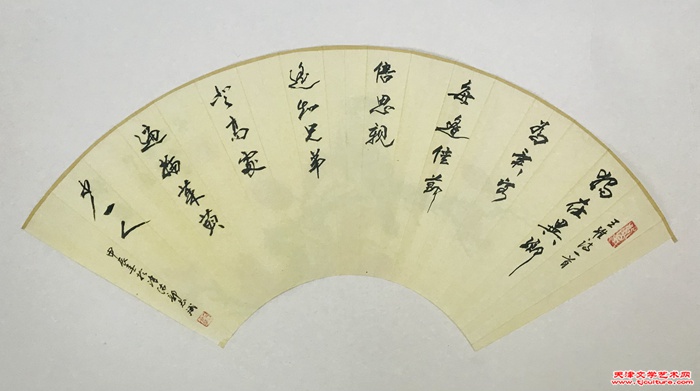 獨在異鄉
王维诗一首
為異客
每逢佳節
倍思親
遥知兄弟
登高處
遍插茱萸
少一人
甲辰年於津沽
天津文学艺术网
www.tjculture.com